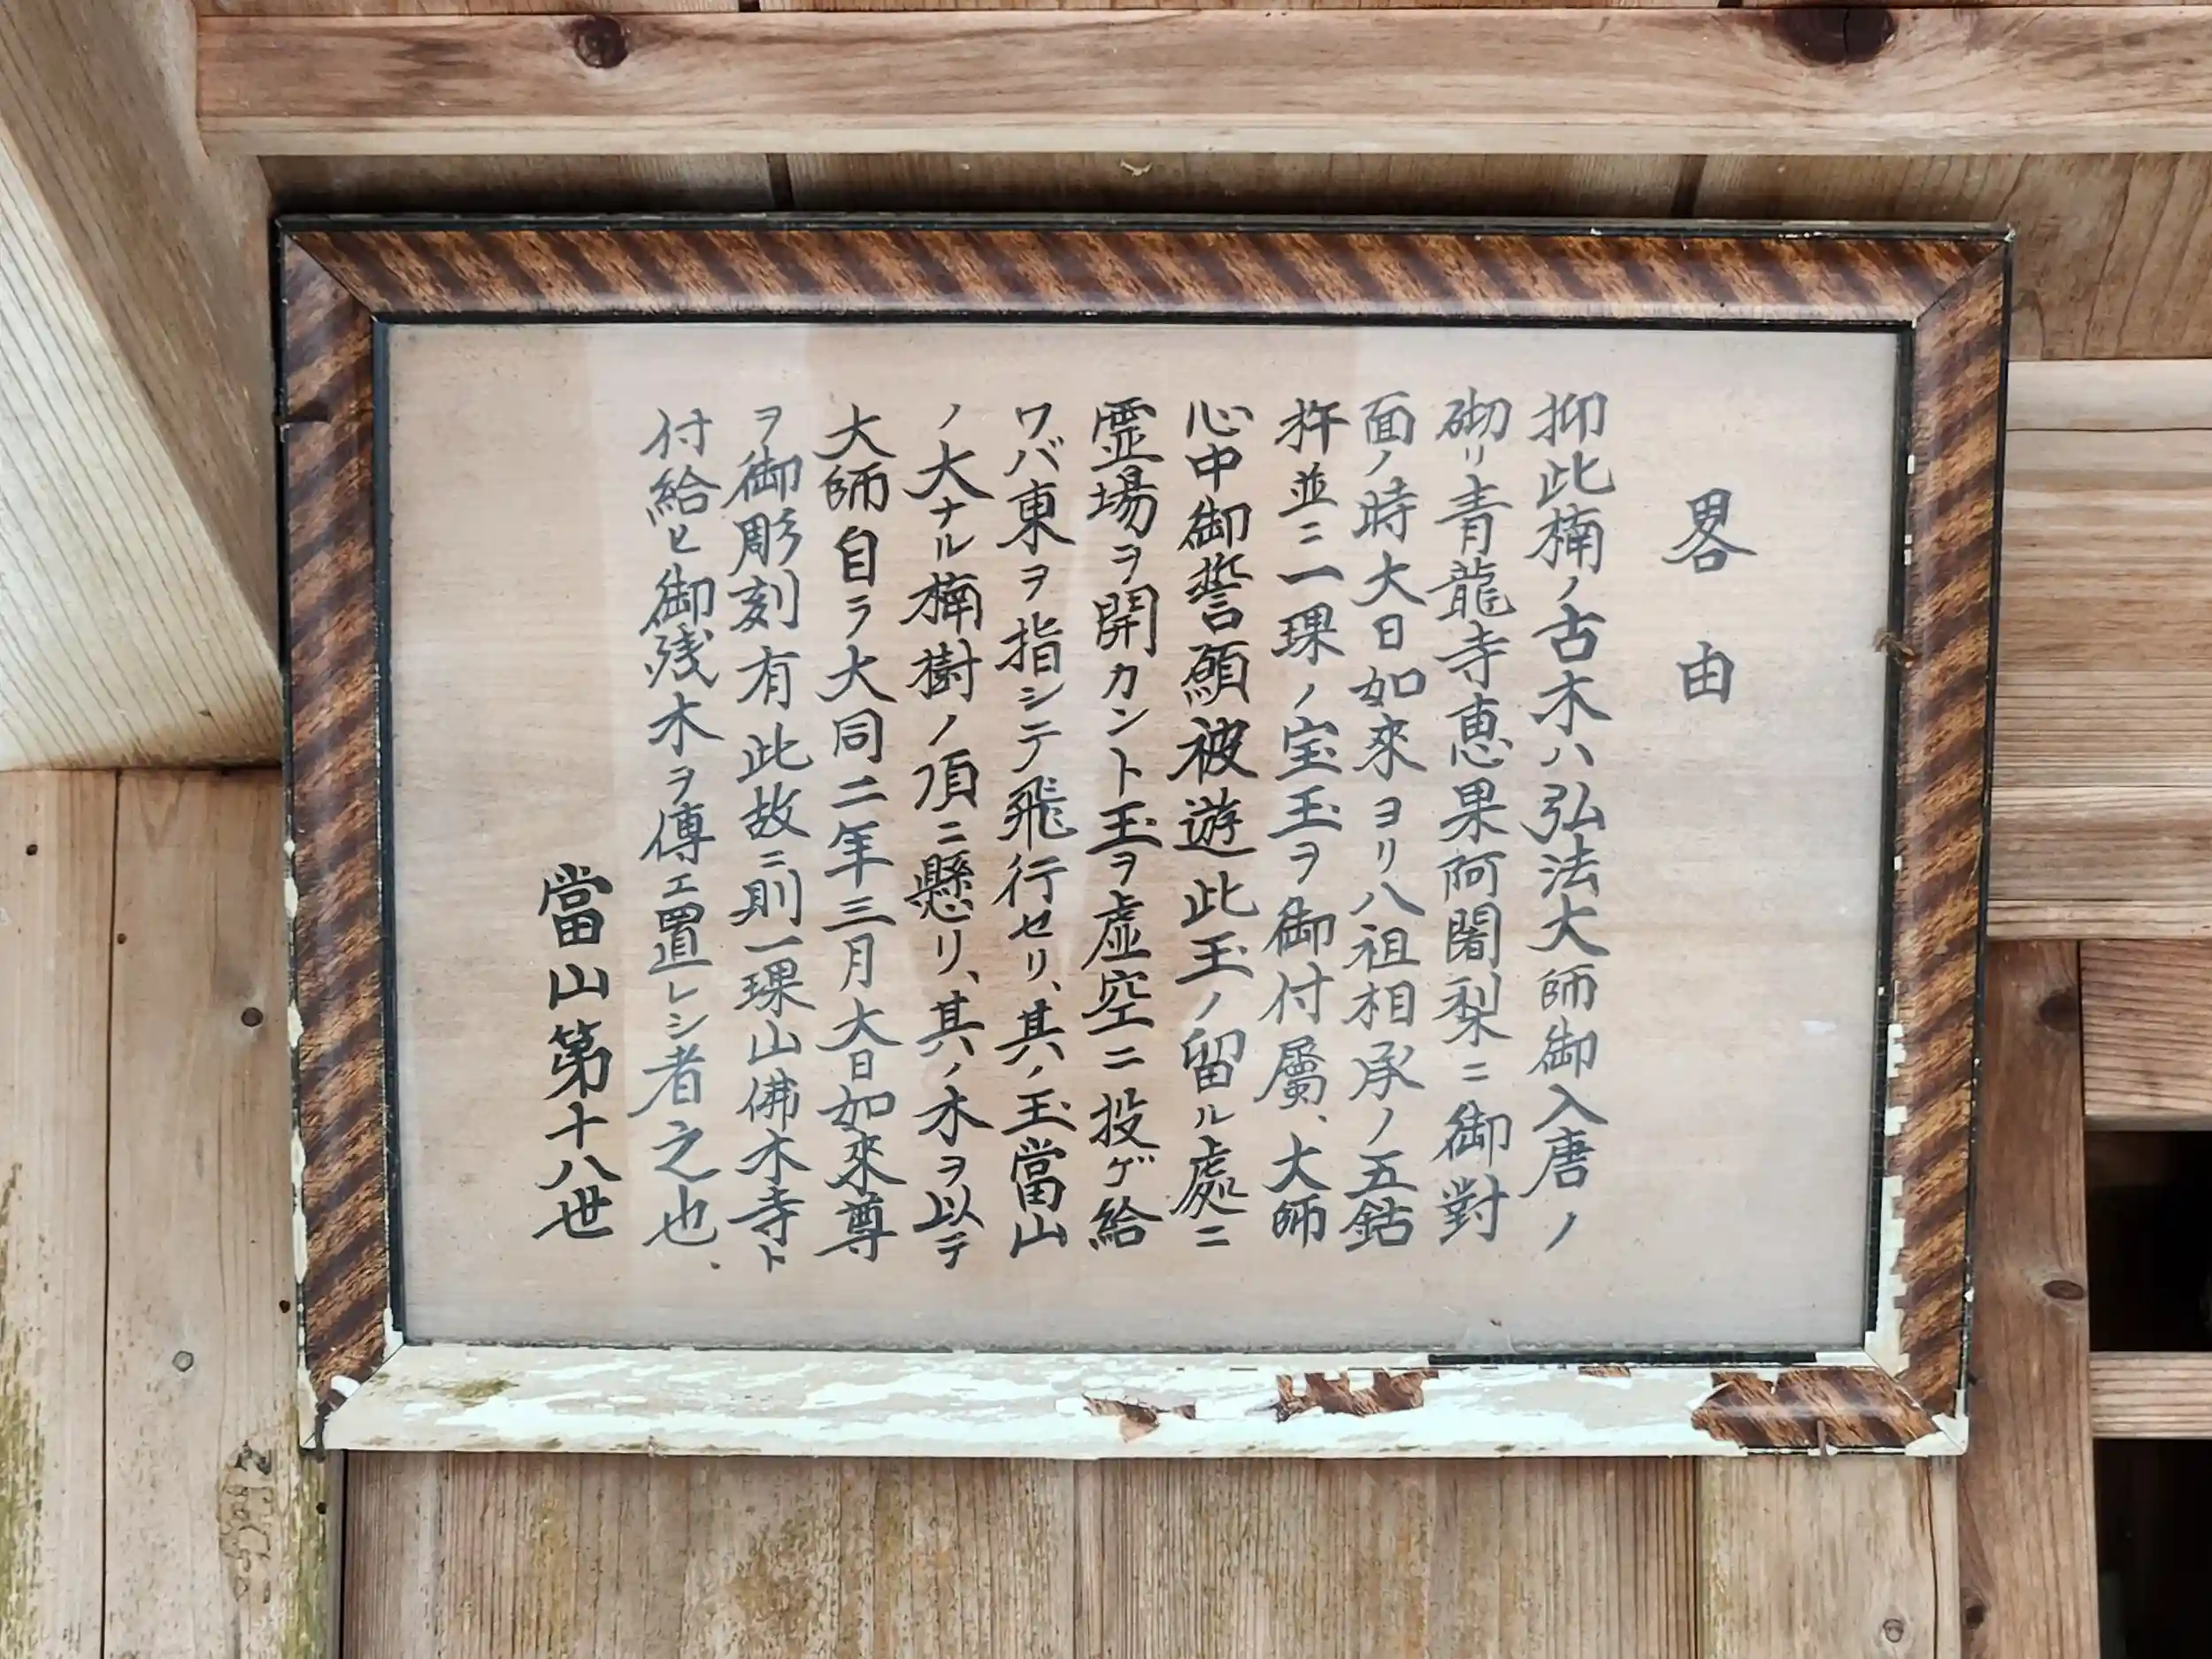 畧由
抑此楠ノ古木ハ弘法大師御入唐ノ
砌リ青龍寺恵果阿闍梨ニ御對
面ノ時大日如來ヨリ八祖相承ノ五鈷
杵並ニ一琜ノ宝玉ヲ御付屬、大師
心中御誓願被遊此玉ノ留ル處ニ
霊場ヲ開カント玉ヲ虚空ニ投ゲ給
ワバ東ヲ指シテ飛行セリ、其ノ玉當山
ノ大ナル楠樹ノ頂ニ懸リ、其ノ木ヲ以テ
大師自ラ大同二年三月大日如來尊
ヲ御彫刻有此故ニ則一琜山佛木寺ト
付給ヒ御残木ヲ傳エ置レシ者之也、
當山第十八世